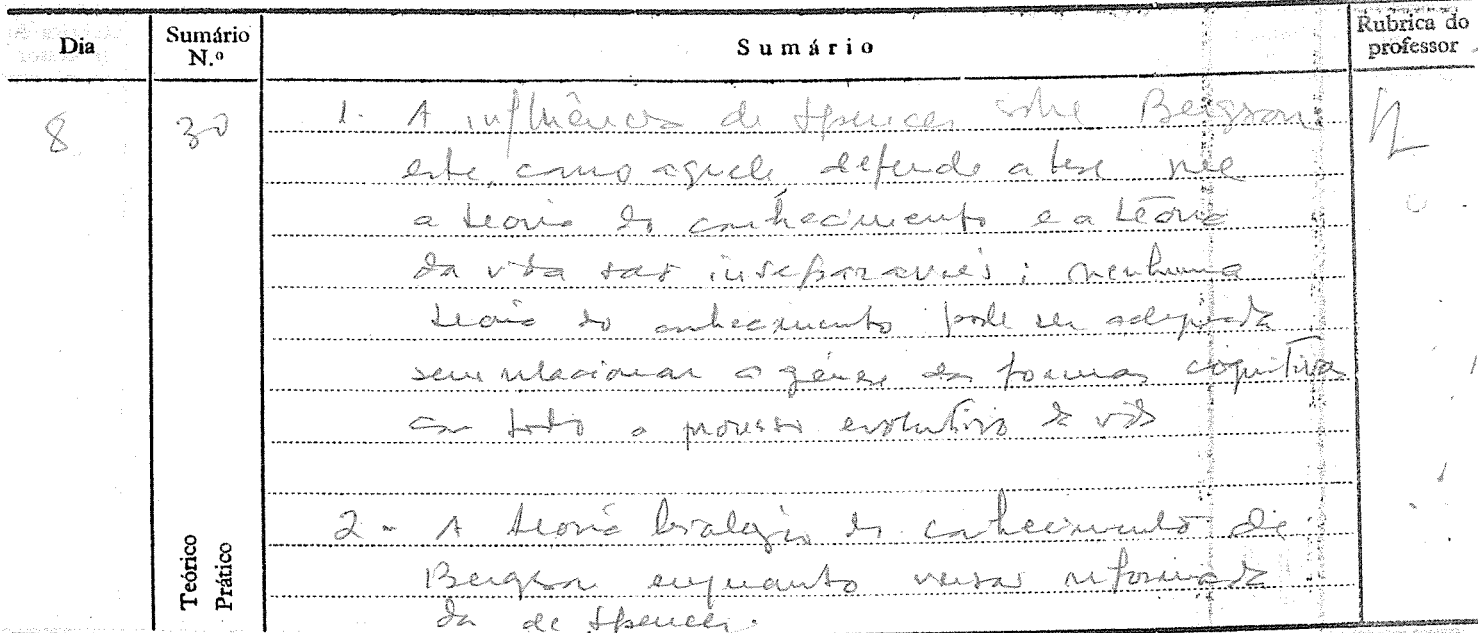 Dia
Sumário N.º
Sumário
Rubrica do professor
8
30
1. A influência de Spencer sobre Bergson:
este, como aquele defende a tese que
a teoria do conhecimento e a teoria
da vida são inseparáveis; nenhuma
teoria do conhecimento pode ser adequada
sem relacionar a génese das formas cognitivas
com todo o processo evolutivo da vida
2 - A teoria biológica do conhecimento de
Bergson enquanto versão reformada
da de Spencer.
Teórico
Prático